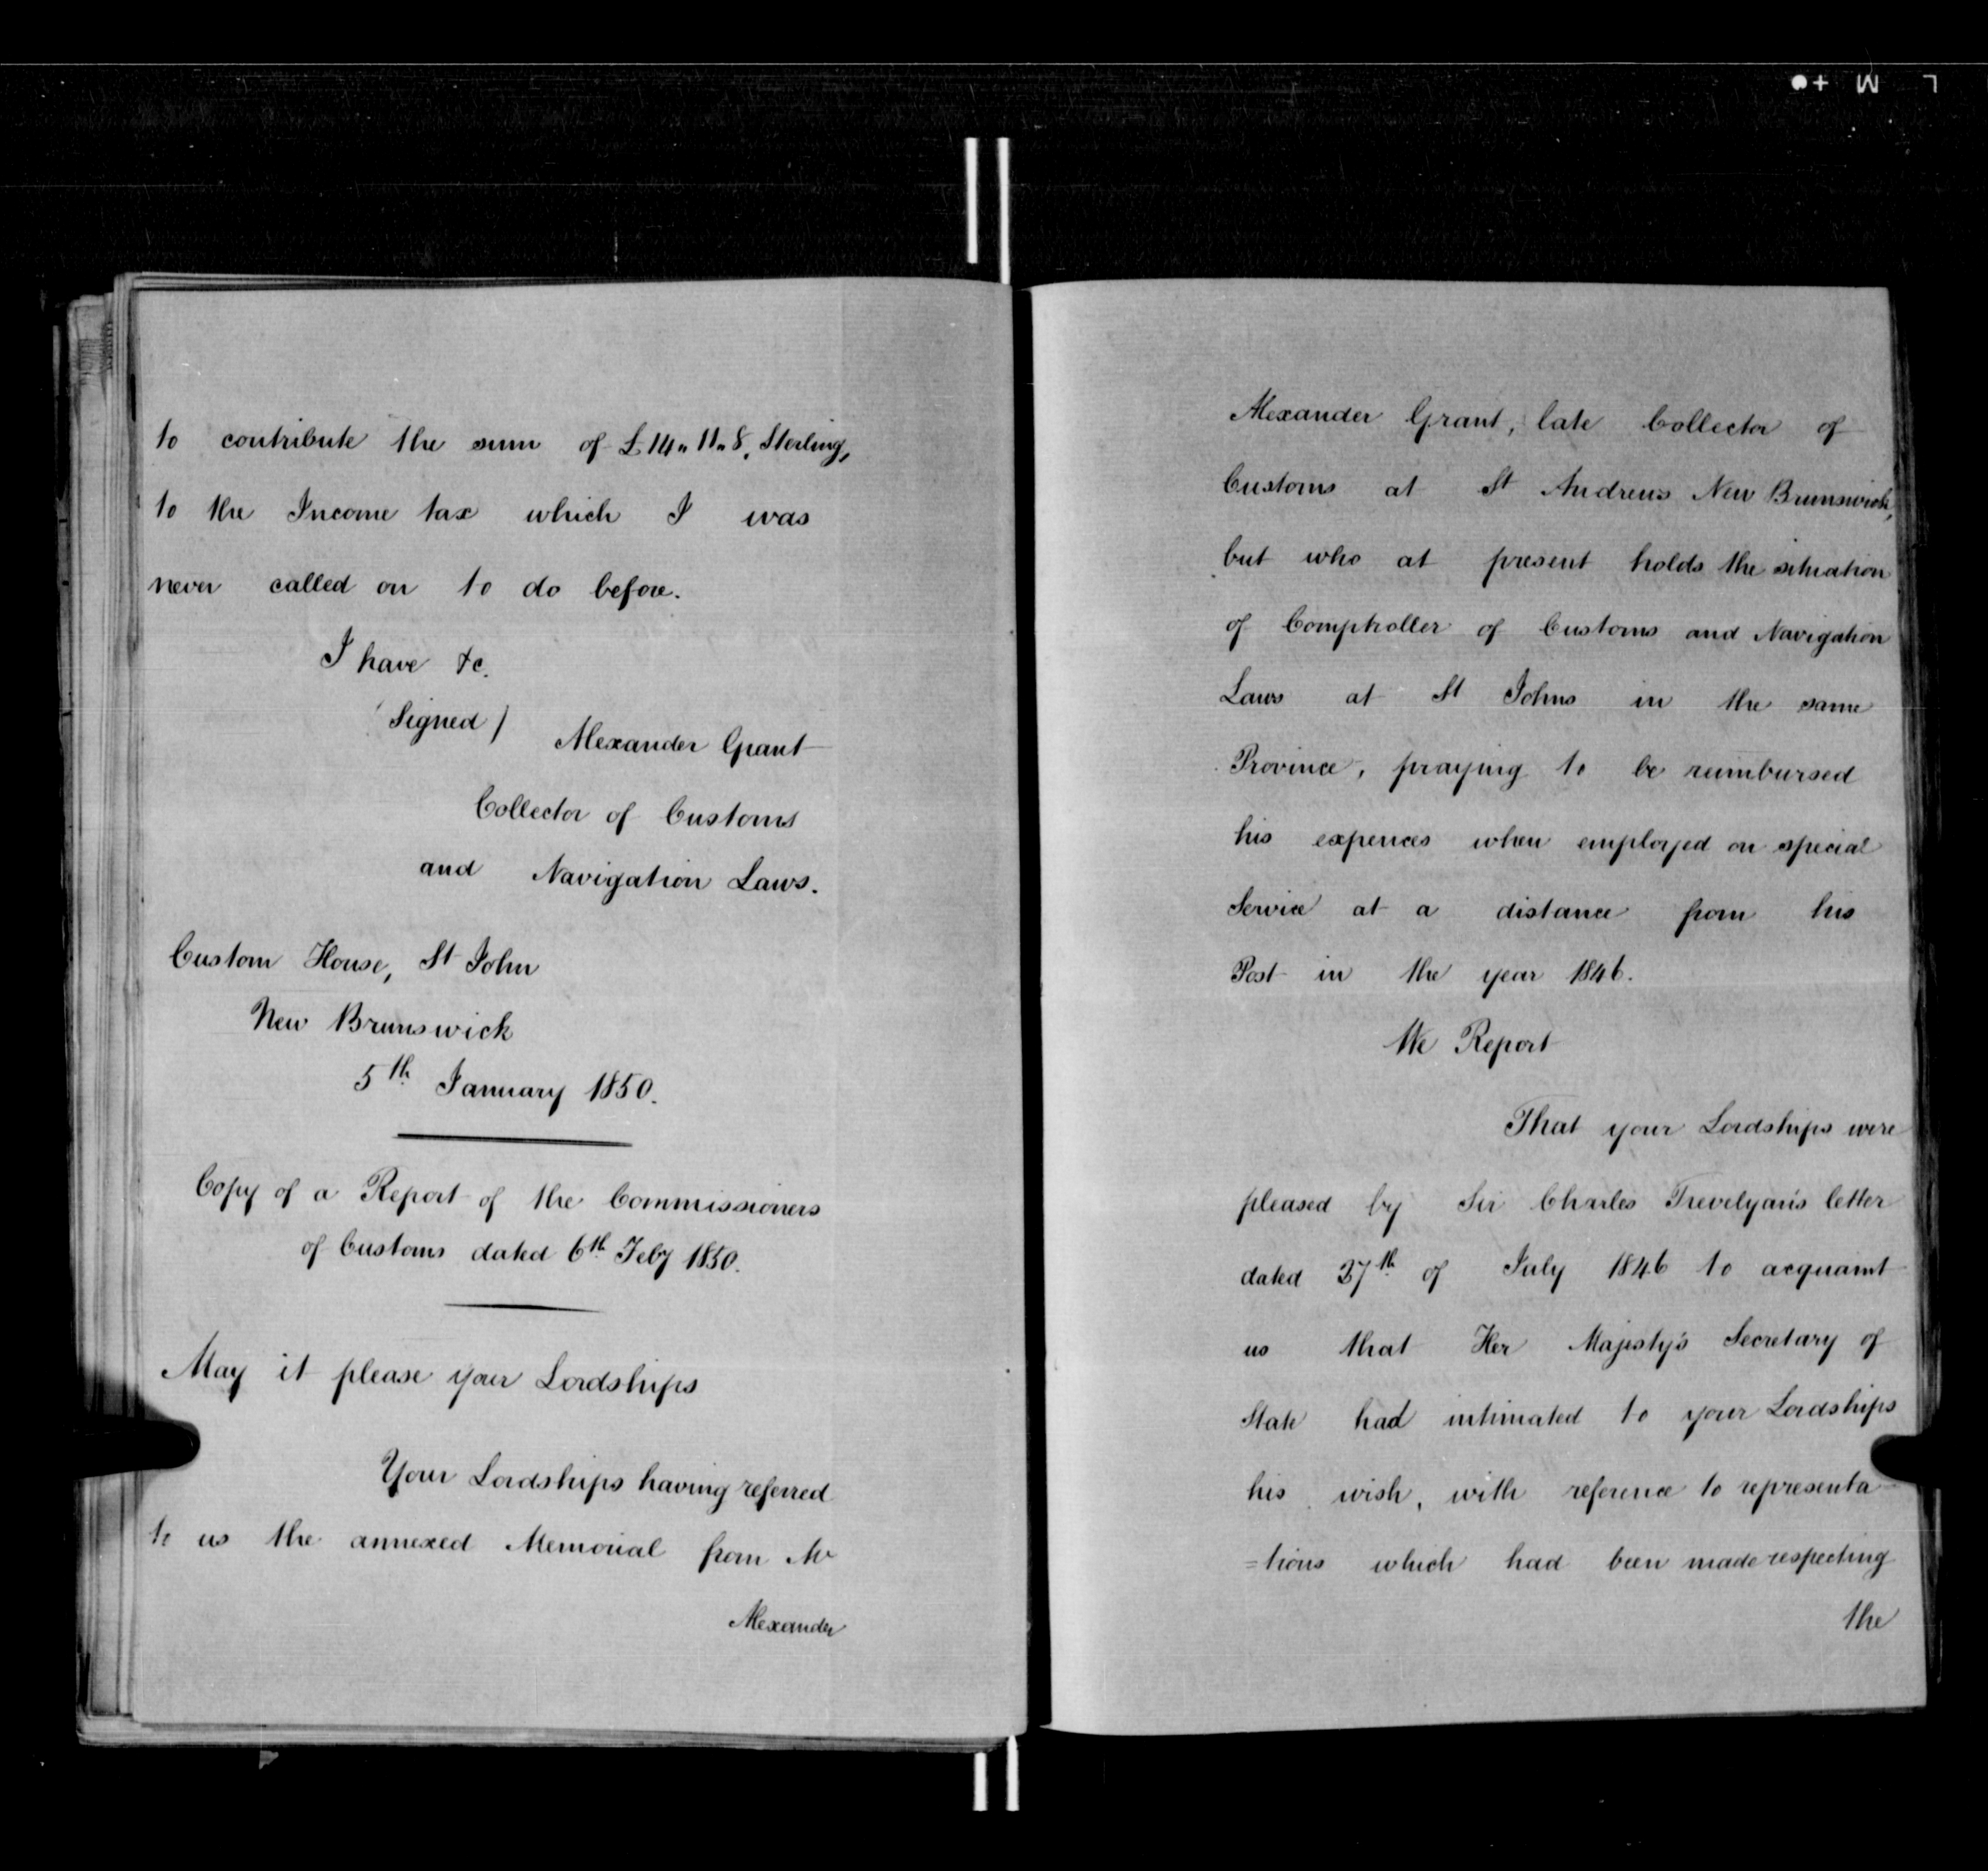 to contribute the sum of £14„11„8, Sterling,
to the Income tax which I was
never called on to do before.
I have &c.
(Signed) Alexander Grant
Collector of Customs
and Navigation Laws.
Custom House, St John
New Brunswick
5th January 1850.
Copy of a Report of the Commissioners
of Customs dated 6th Feby 1850.
May it please your Lordships
Your Lordships having referred
to us the annexed Memorial from Mr
Alexander
Alexander Grant, late Collector of
Customs at St Andrews New Brunswick,
but who at present holds the situation
of Comptroller of Customs and Navigation
Laws at St Johns in the same
Province, praying to be reimbursed
his expences when employed on special
Service at a distance from his
Post in the year 1846.
We Report
That your Lordships were
pleased by Sir Charles Trevelyan's letter
dated 27th of July 1846 to acquaint
us that Her Majesty's Secretary of
State had intimated to your Lordships
his wish, with reference to representa
=tions which had been made respecting
the
L M +